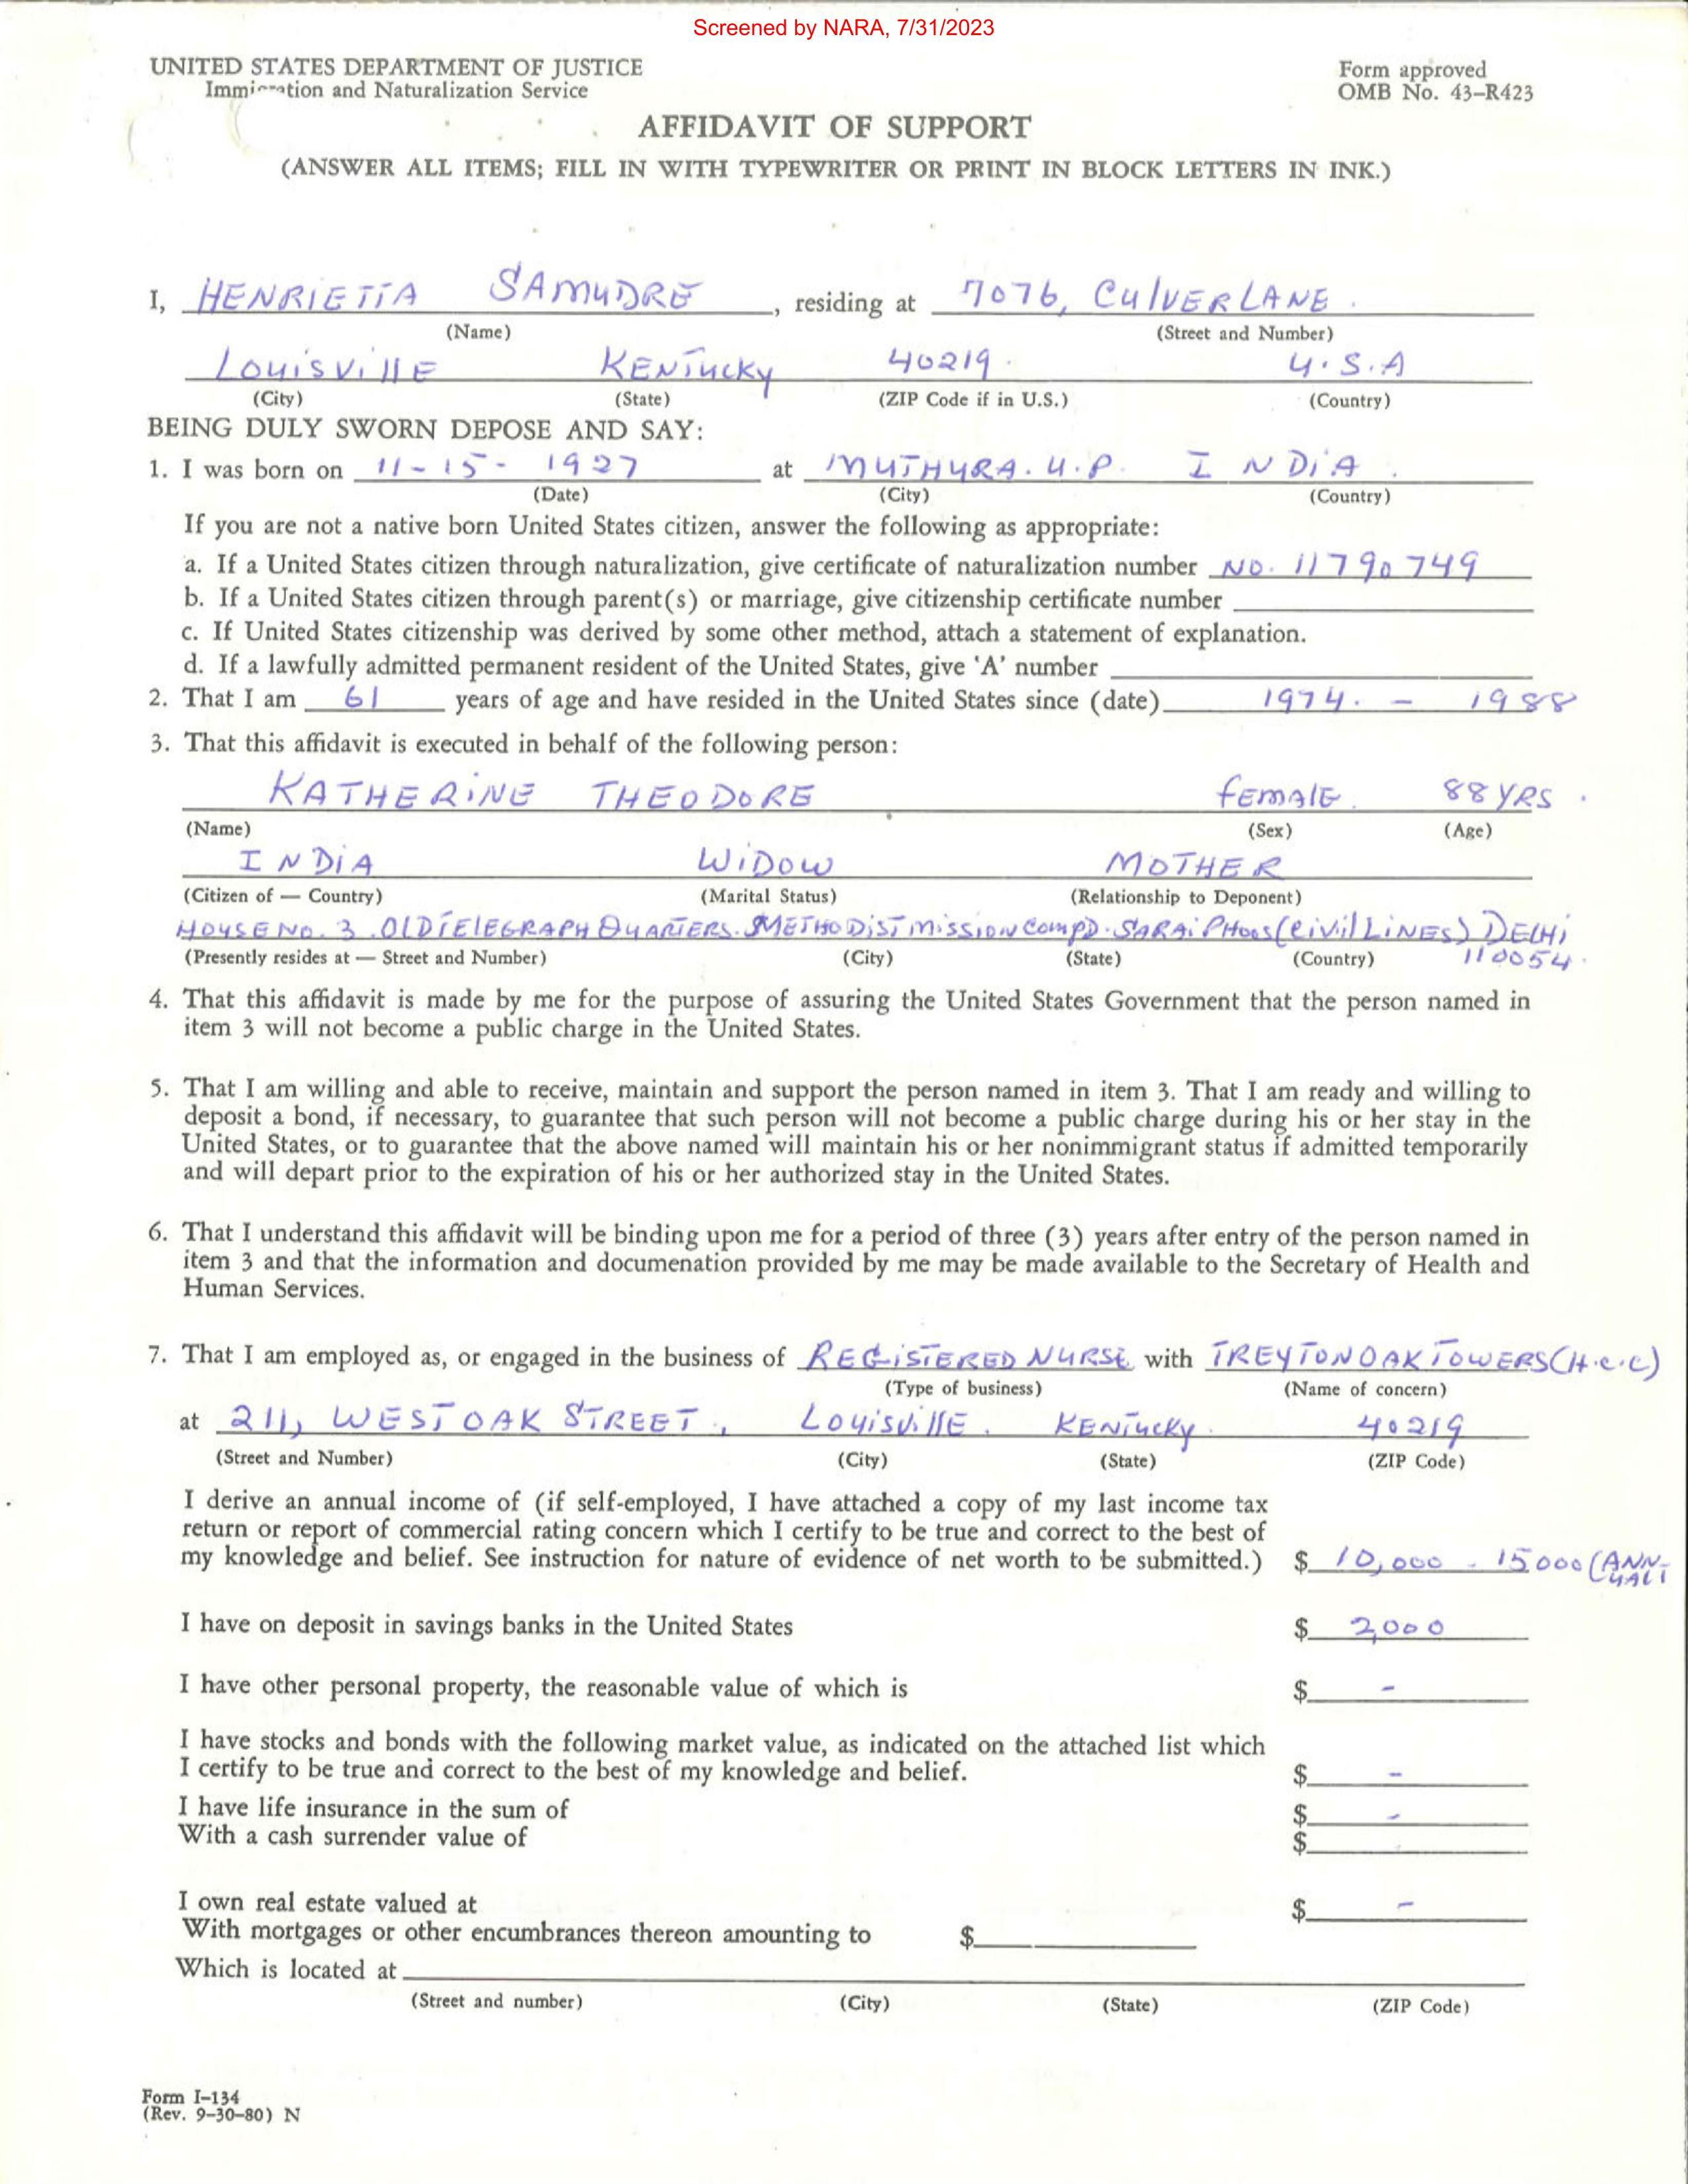 Screened by NARA, 7/31/2023
UNITED STATES DEPARTMENT OF JUSTICE
Immigration and Naturalization Service
Form approved
OMB No. 43-R423
AFFIDAVIT OF SUPPORT
(ANSWER ALL ITEMS; FILL IN WITH TYPEWRITER OR PRINT IN BLOCK LETTERS IN INK.)
I, HENRIETTA SAMUDRE, residing at 7076, CULVER LANE.
(Name) (Street and Number)
LOUISVILLE KENTUCKY 40219. U.S.A
(City) (State) (ZIP Code if in U.S.) (Country)
BEING DULY SWORN DEPOSE AND SAY:
1. I was born on 11-15-1927 at MUTHURA. U.P. INDIA.
(Date) (City) (Country)
If you are not a native born United States citizen, answer the following as appropriate:
a. If a United States citizen through naturalization, give certificate of naturalization number NO. 11790749
b. If a United States citizen through parent(s) or marriage, give citizenship certificate number
c. If United States citizenship was derived by some other method, attach a statement of explanation.
d. If a lawfully admitted permanent resident of the United States, give 'A' number
2. That I am 61 years of age and have resided in the United States since (date) 1974. - 1988
3. That this affidavit is executed in behalf of the following person:
KATHERINE THEODORE FEMALE. 88 YRS.
(Name) (Sex) (Age)
INDIA WIDOW MOTHER
(Citizen of — Country) (Marital Status) (Relationship to Deponent)
HOUSE NO. 3. OLD TELEGRAPH QUARTERS. METHODIST MISSION COMPD. SARAI PHOOS (CIVIL LINES) DELHI
(Presently resides at — Street and Number) (City) (State) (Country) 110054.
4. That this affidavit is made by me for the purpose of assuring the United States Government that the person named in
item 3 will not become a public charge in the United States.
5. That I am willing and able to receive, maintain and support the person named in item 3. That I am ready and willing to
deposit a bond, if necessary, to guarantee that such person will not become a public charge during his or her stay in the
United States, or to guarantee that the above named will maintain his or her nonimmigrant status if admitted temporarily
and will depart prior to the expiration of his or her authorized stay in the United States.
6. That I understand this affidavit will be binding upon me for a period of three (3) years after entry of the person named in
item 3 and that the information and documenation provided by me may be made available to the Secretary of Health and
Human Services.
7. That I am employed as, or engaged in the business of REGISTERED NURSE with TREYTON OAK TOWERS (H.C.C)
(Type of business) (Name of concern)
at 211, WEST OAK STREET, LOUISVILLE. KENTUCKY. 40219
(Street and Number) (City) (State) (ZIP Code)
I derive an annual income of (if self-employed, I have attached a copy of my last income tax
return or report of commercial rating concern which I certify to be true and correct to the best of
my knowledge and belief. See instruction for nature of evidence of net worth to be submitted.) $ 10,000 - 15000 (ANN-
UALI
I have on deposit in savings banks in the United States $ 2,000
I have other personal property, the reasonable value of which is $ -
I have stocks and bonds with the following market value, as indicated on the attached list which
I certify to be true and correct to the best of my knowledge and belief. $ -
I have life insurance in the sum of $ -
With a cash surrender value of $
I own real estate valued at $ -
With mortgages or other encumbrances thereon amounting to $
Which is located at
(Street and number) (City) (State) (ZIP Code)
Form I-134
(Rev. 9-30-80) N